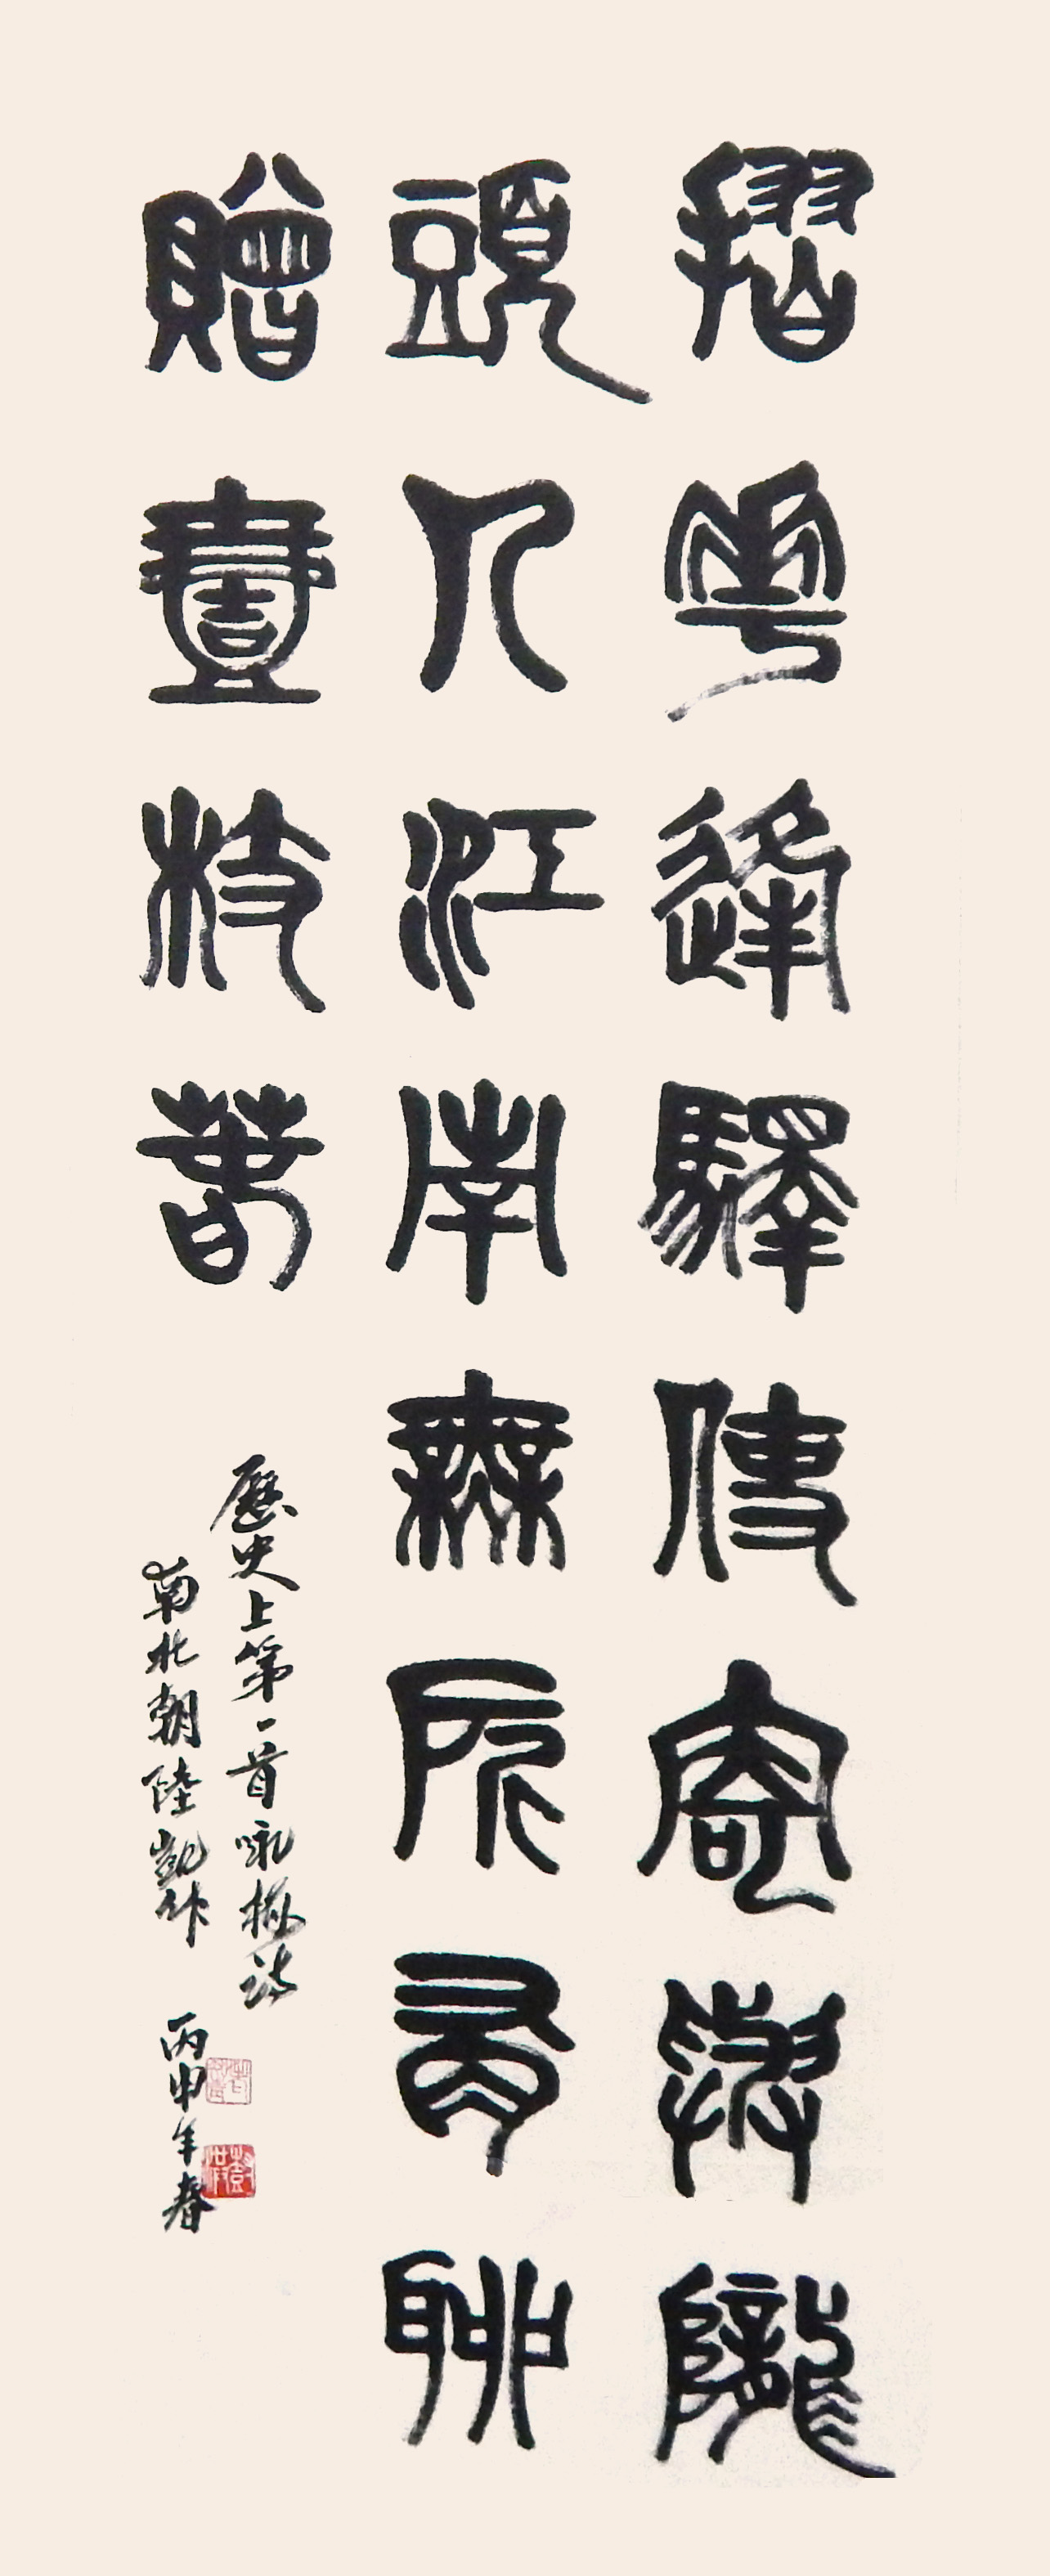 摺花逢驛使寄與隴
頭人江南無所有聊
贈壹枝春
歷史上第一首咏梅詩
南北朝陸凱作 丙申年春